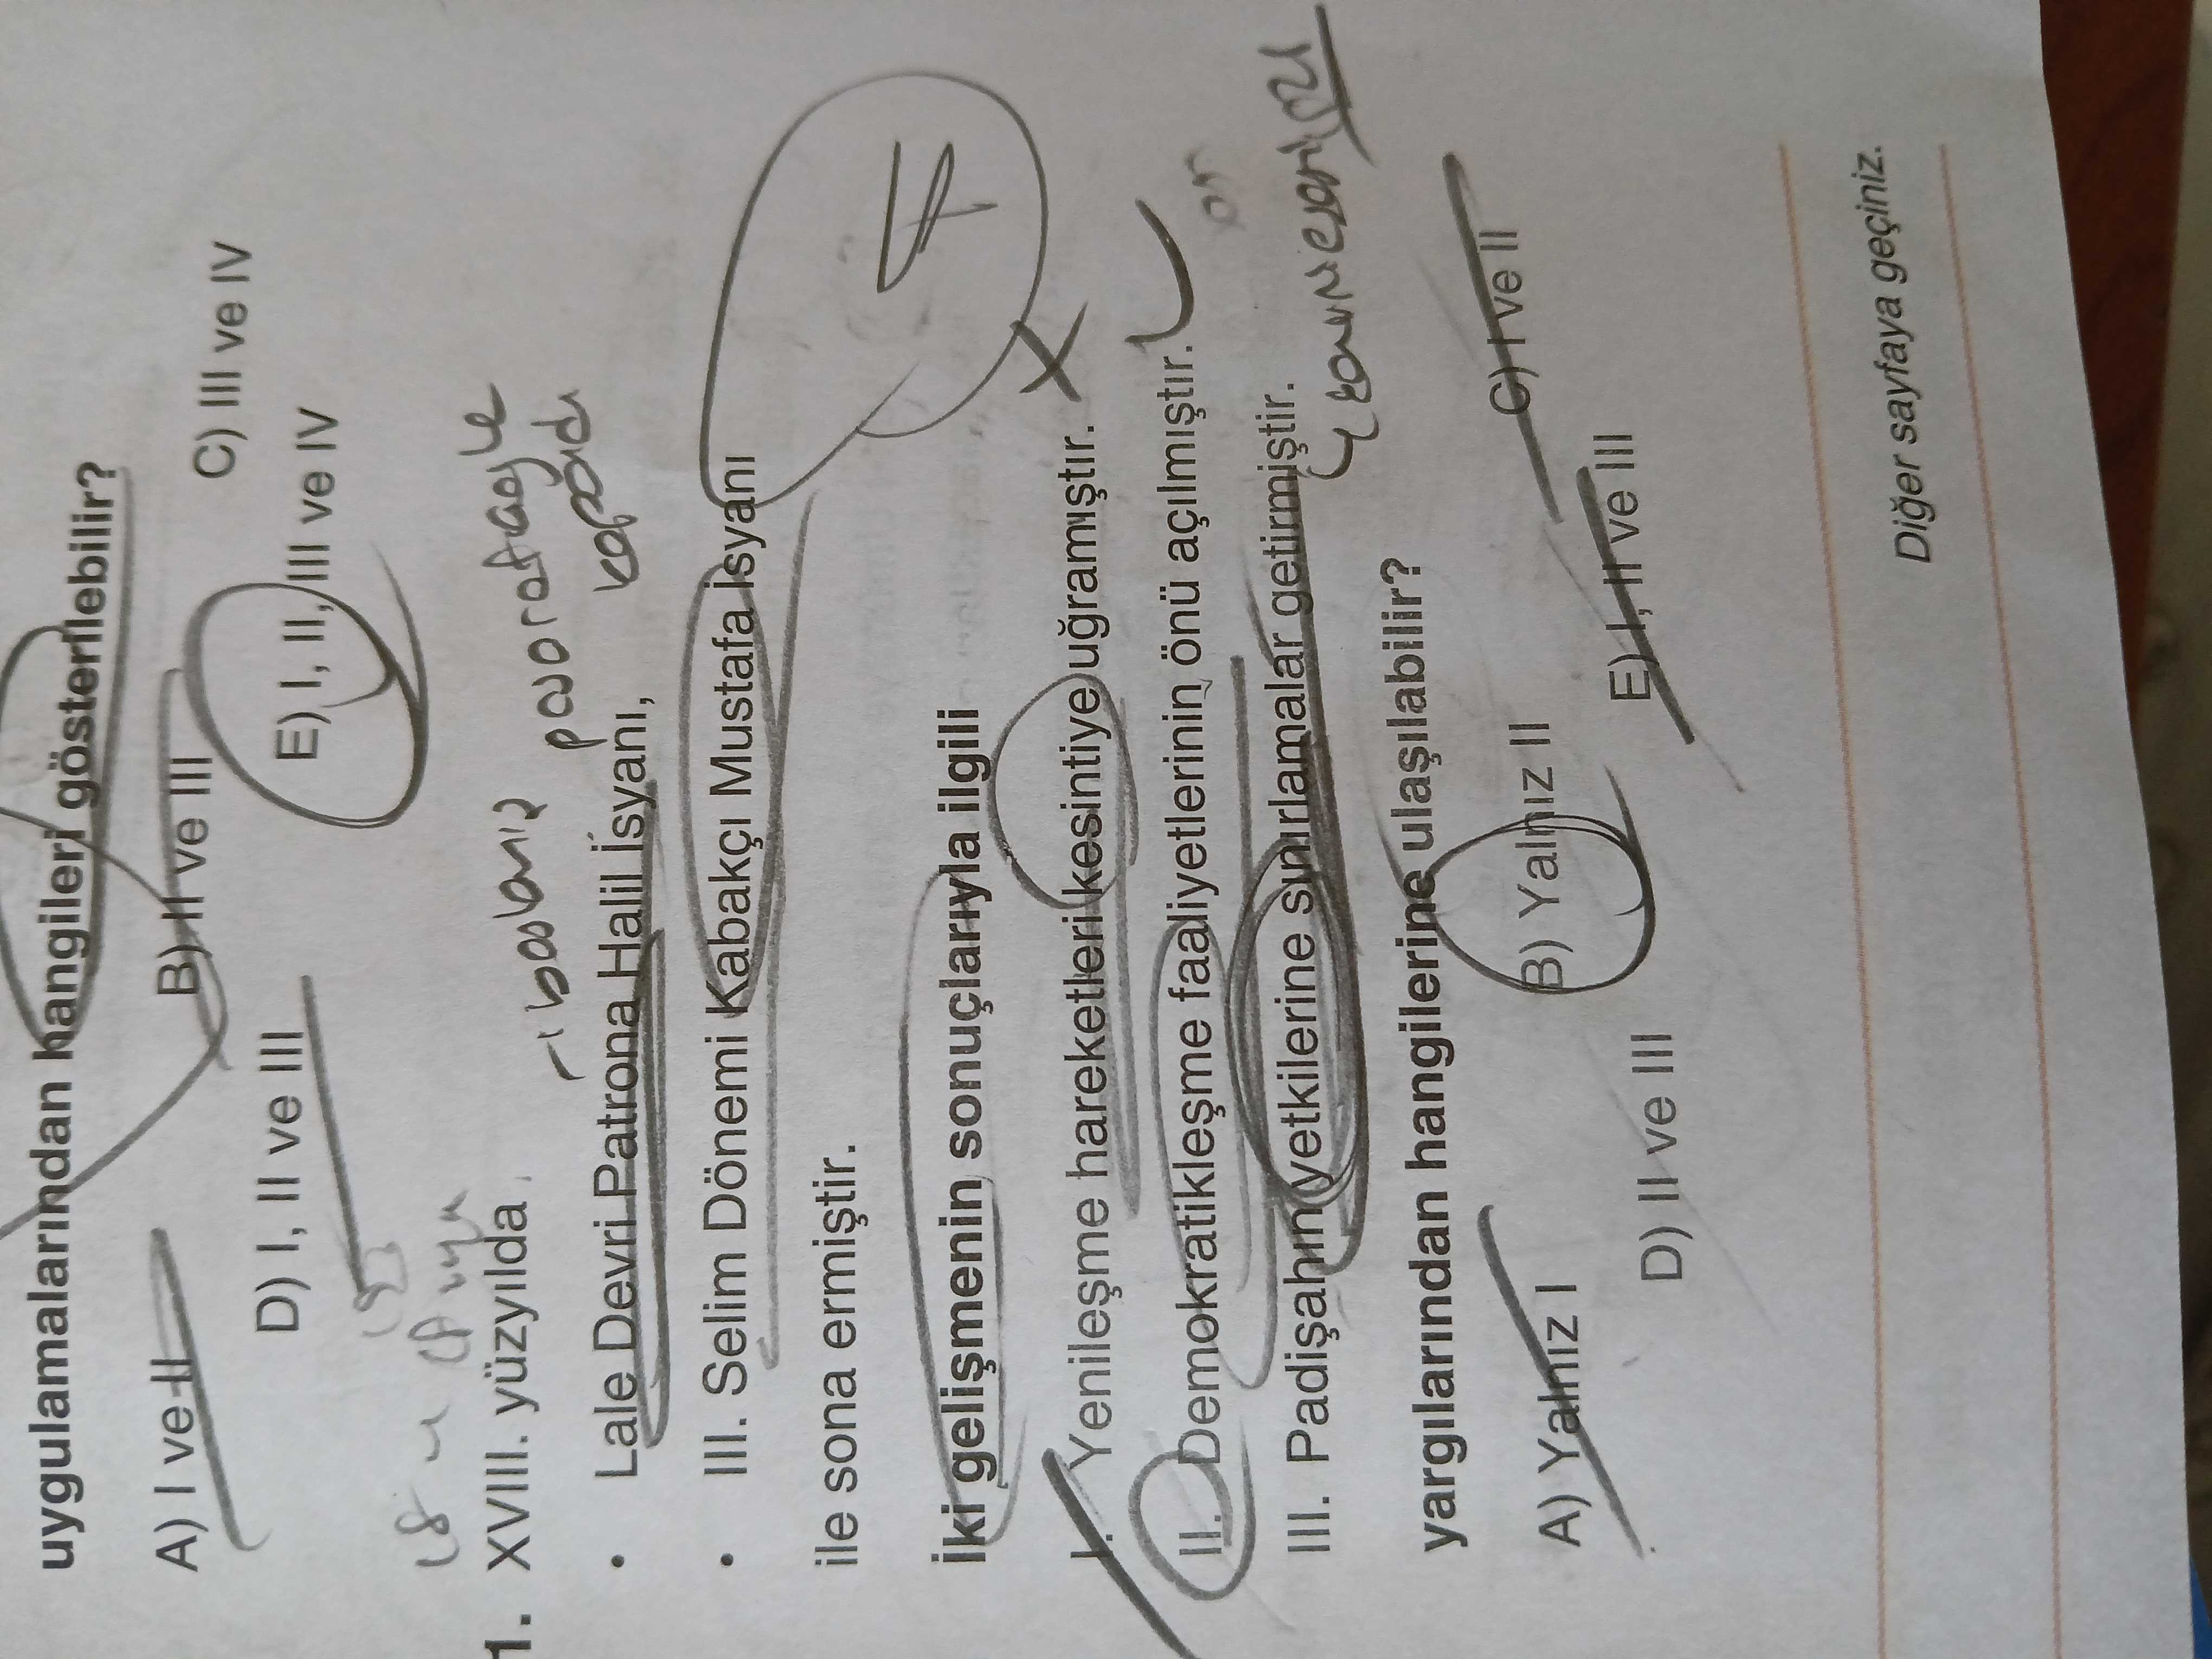 uygulamalarından hangileri gösterilebilir?
A) I ve II
B) II ve III
C) III ve IV
D) I, II ve III
E) I, II, III ve IV
18
1. XVIII. yüzyılda
• Lale Devri Patrona Halil İsyanı,
• III. Selim Dönemi Kabakçı Mustafa İsyanı
ile sona ermiştir.
İki gelişmenin sonuçlarıyla ilgili
I. Yenileşme hareketleri kesintiye uğramıştır.
II. Demokratikleşme faaliyetlerinin önü açılmıştır.
III. Padişahın yetkilerine sınırlamalar getirmiştir.
yargılarından hangilerine ulaşılabilir?
A) Yalnız I
B) Yalnız II
C) I ve II
D) II ve III
E) I, II ve III
Diğer sayfaya geçiniz.